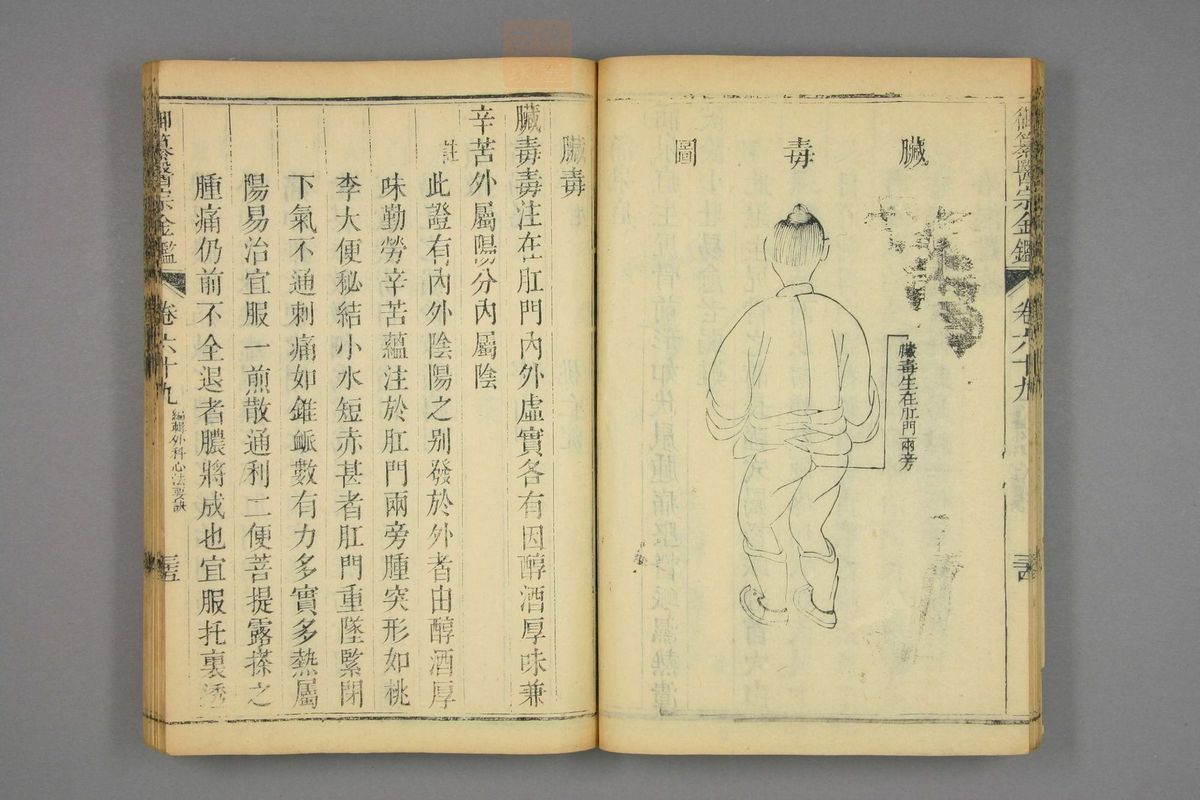 臟毒圖
臟毒生在肛門兩旁
御纂醫宗金鑑
卷六十九
臟毒
臟毒毒注在肛門內外虛實各有因醇酒厚味兼
辛苦外屬陽分內屬陰
註
此證有內外陰陽之別發於外者由醇酒厚
味勤勞辛苦蘊注於肛門兩旁腫突形如桃
李大便秘結小水短赤甚者肛門重墜緊閉
下氣不通刺痛如錐脈數有力多實多熱屬
陽易治宜服一煎散通利二便菩提露搽之
腫痛仍前不全退者膿將成也宜服托裏透
御纂醫宗金鑑
卷六十九
編輯外科心法要訣